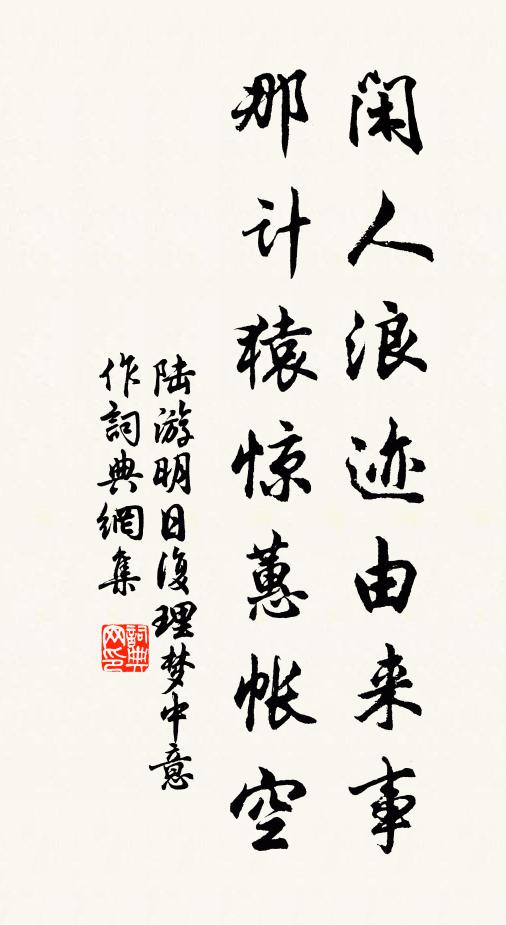 闲人浪迹由来事
那计猿惊蕙帐空
陆游明日復理梦中意
作詞典網集
詞典網印